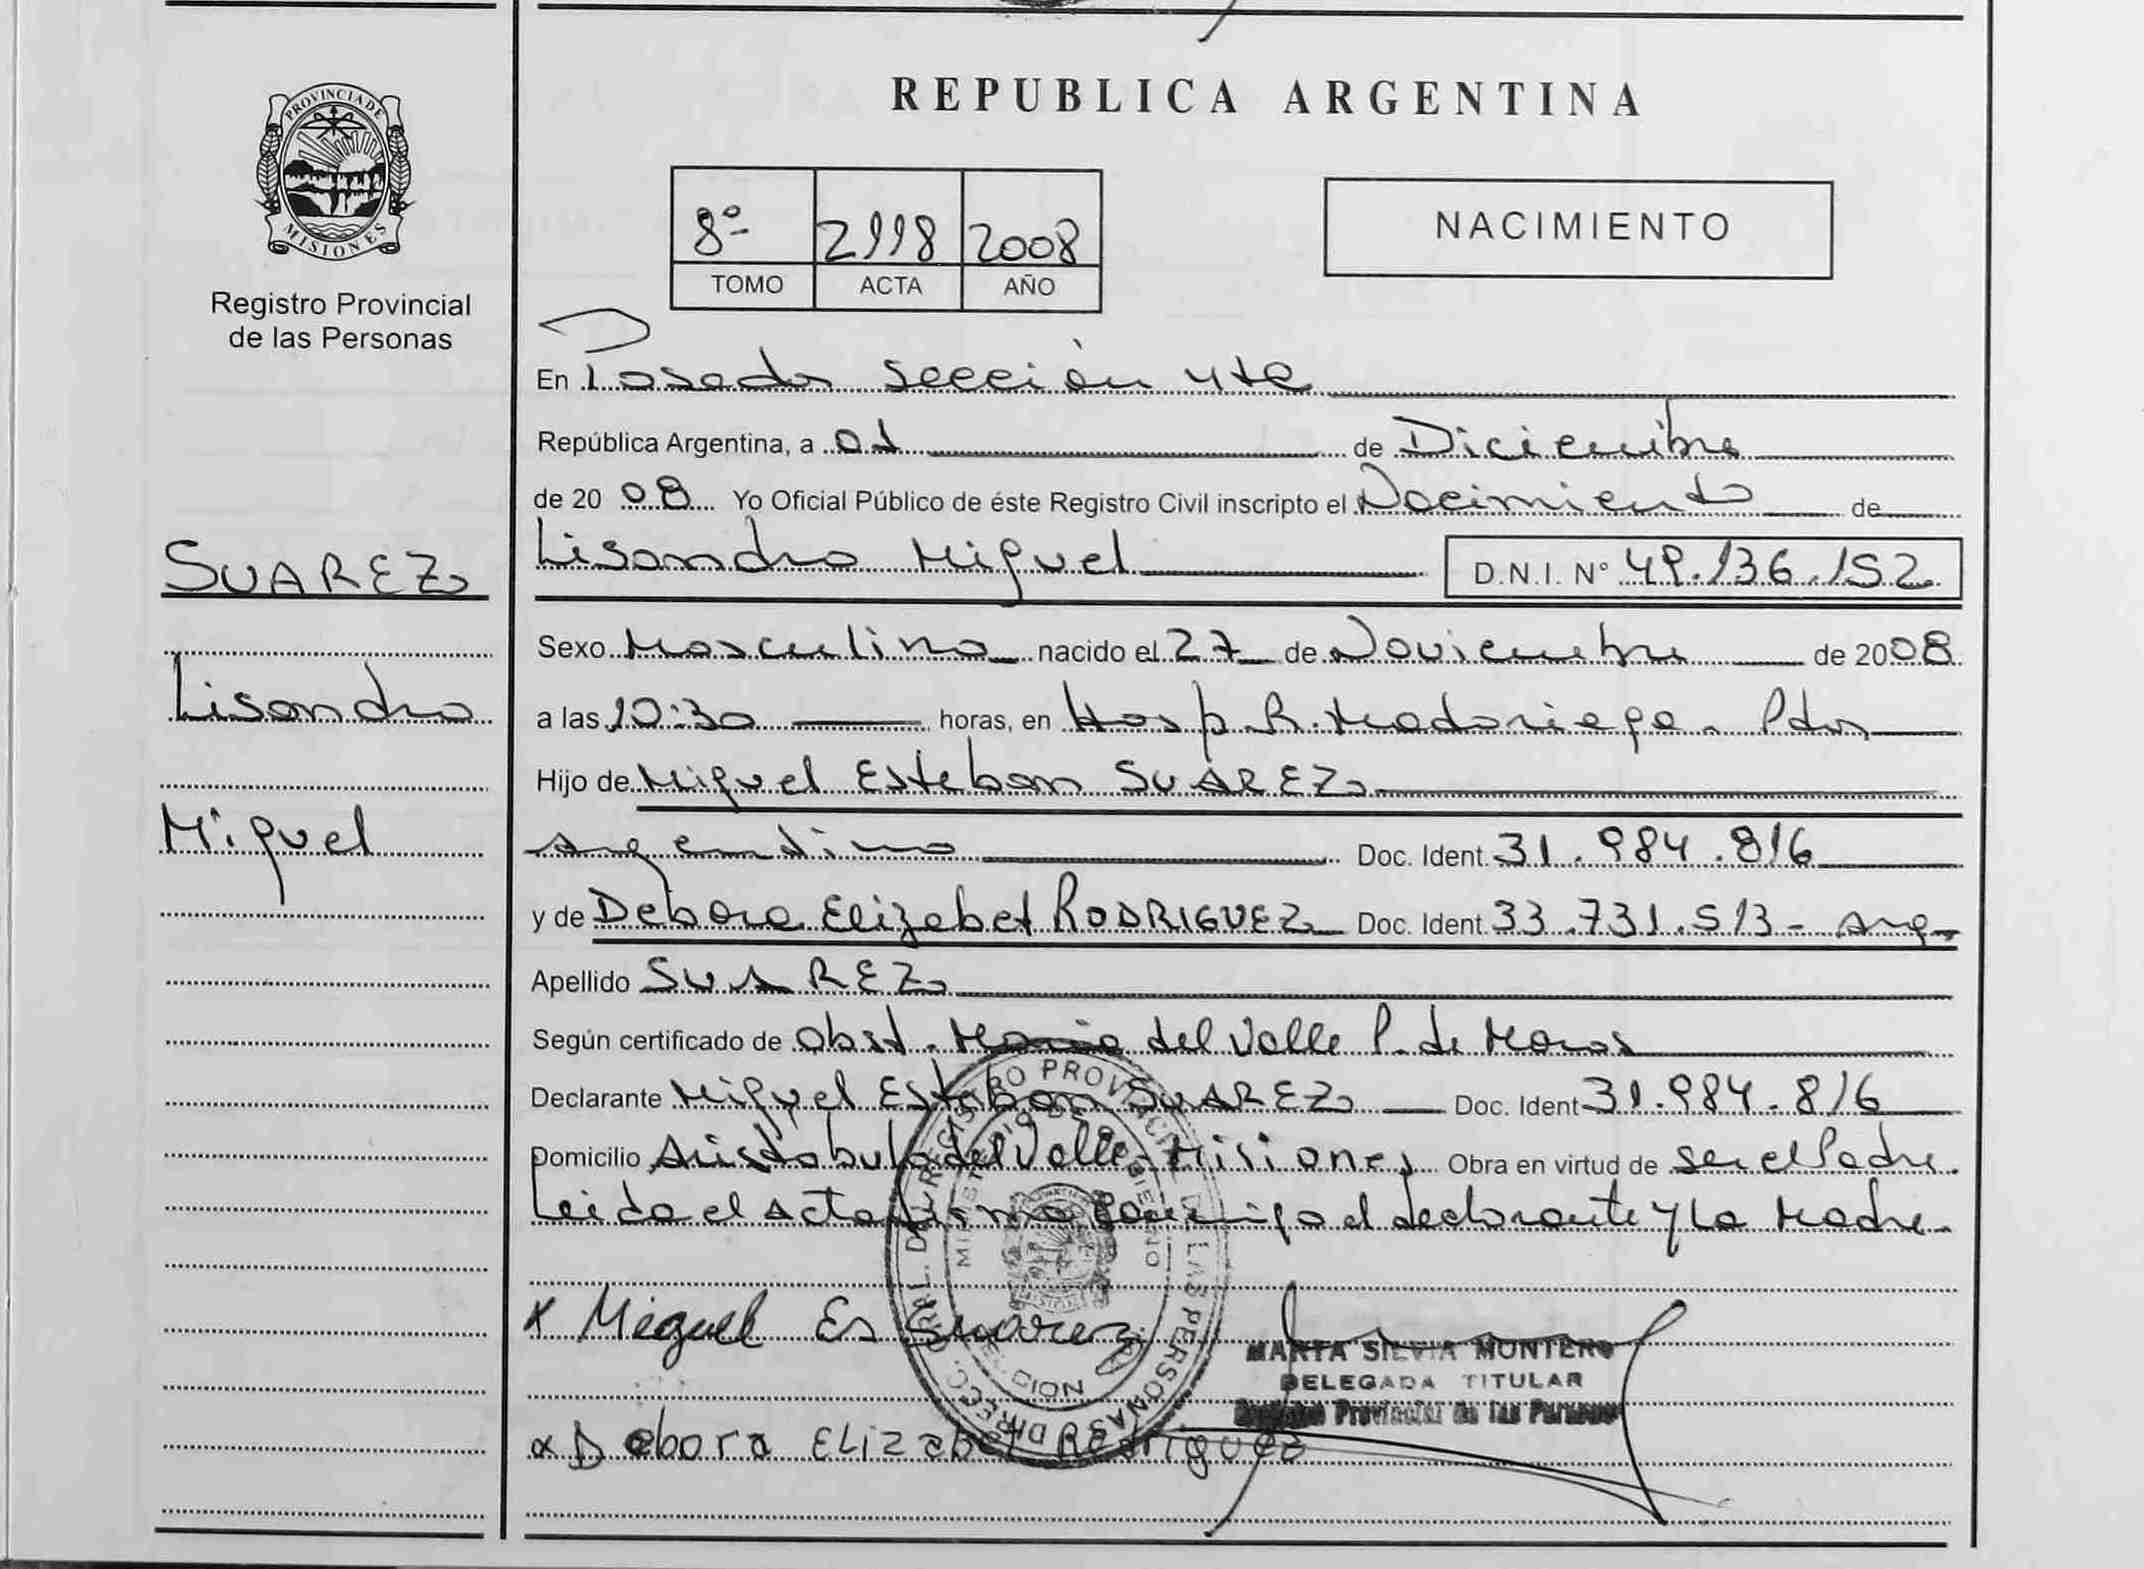 PROVINCIA DE
MISIONES
Registro Provincial
de las Personas
SUAREZ
Lisandro
Miguel
REPUBLICA ARGENTINA
8º 2998 2008
TOMO ACTA AÑO
NACIMIENTO
En Posadas Sección 4ta
República Argentina, a 01 de Diciembre
de 2008 Yo Oficial Público de éste Registro Civil inscripto el Nacimiento de
Lisandro Miguel D.N.I. Nº 49.136.152
Sexo Masculino nacido el 27 de Noviembre de 2008
a las 10:30 horas, en Hosp. R. Madariaga - Pdas
Hijo de Miguel Esteban SUAREZ
Argentino Doc. Ident. 31.984.816
y de Debora Elizabet RODRIGUEZ Doc. Ident. 33.731.513 - Arg.
Apellido SUAREZ
Según certificado de Obst. Maria del Valle P. de Moras
Declarante Miguel Esteban SUAREZ Doc. Ident 31.984.816
Domicilio Aristobulo del Valle - Misiones Obra en virtud de ser el Padre.
Leida el Acta firma conmigo el declarante y la Madre
x Miguel Es Suarez
MARTA SILVIA MONTERO
DELEGADA TITULAR
Registro Provincial de las Personas
x Debora ELizabet Rodriguez
DIRECC. GRAL. DEL REGISTRO PROVINCIAL DE LAS PERSONAS
MINISTERIO DE GOBIERNO
MISIONES